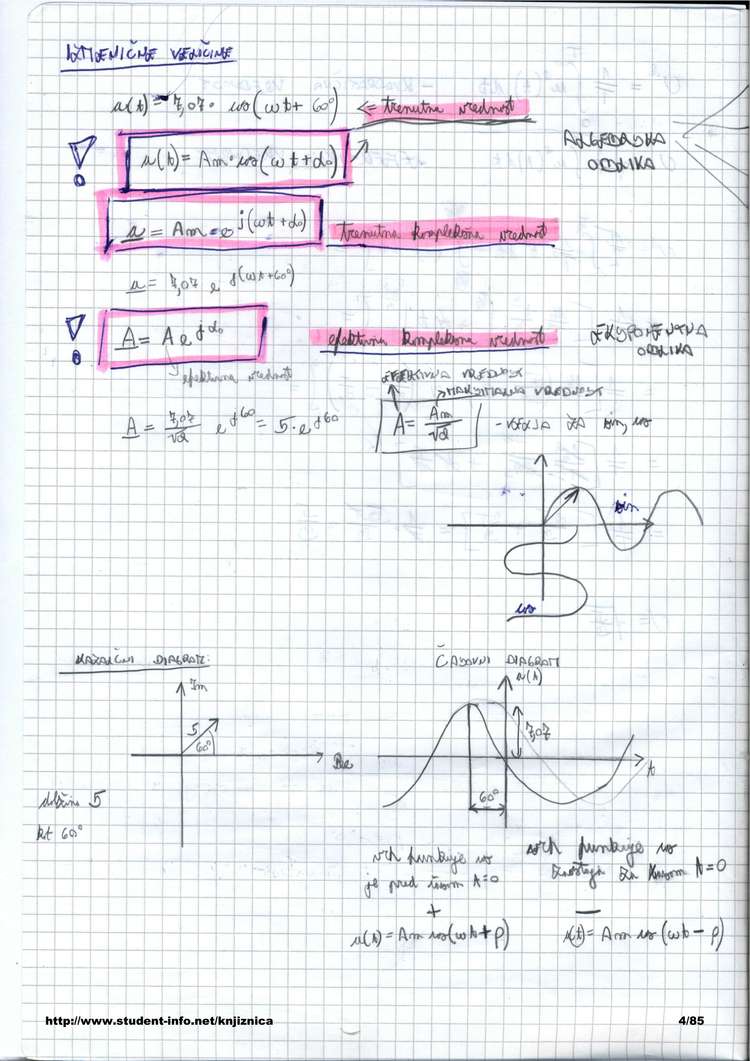 IZMENIČNE VELIČINE
u(t) = 7,07 · cos(ωt + 60°) ⇐ trenutna vrednost
! u(t) = Am · cos(ωt + α₀)
ALGEBRSKA
OBLIKA
u = Am · e^j(ωt + α₀) trenutna kompleksna vrednost
u = 7,07 e^j(ωt + 60°)
! A = A e^jα₀ efektivna kompleksna vrednost
EKSPONENTNA
OBLIKA
efektivna vrednost
EFEKTIVNA VREDNOST
MAKSIMALNA VREDNOST
A = 7,07/√2 e^j60 = 5 · e^j60
A = Am/√2 - VELJA ZA sin, cos
sin
cos
KAZALČNI DIAGRAM:
ČASOVNI DIAGRAM
Im
u(t)
5
60°
7,07
Re
t
60°
dolžina 5
kt 60°
vrh funkcije cos
je pred časom t=0
+
u(t) = Am cos(ωt + φ)
vrh funkcije cos
zaostaja za časom t=0
−
u(t) = Am cos(ωt − φ)
http://www.student-info.net/knjiznica
4/85